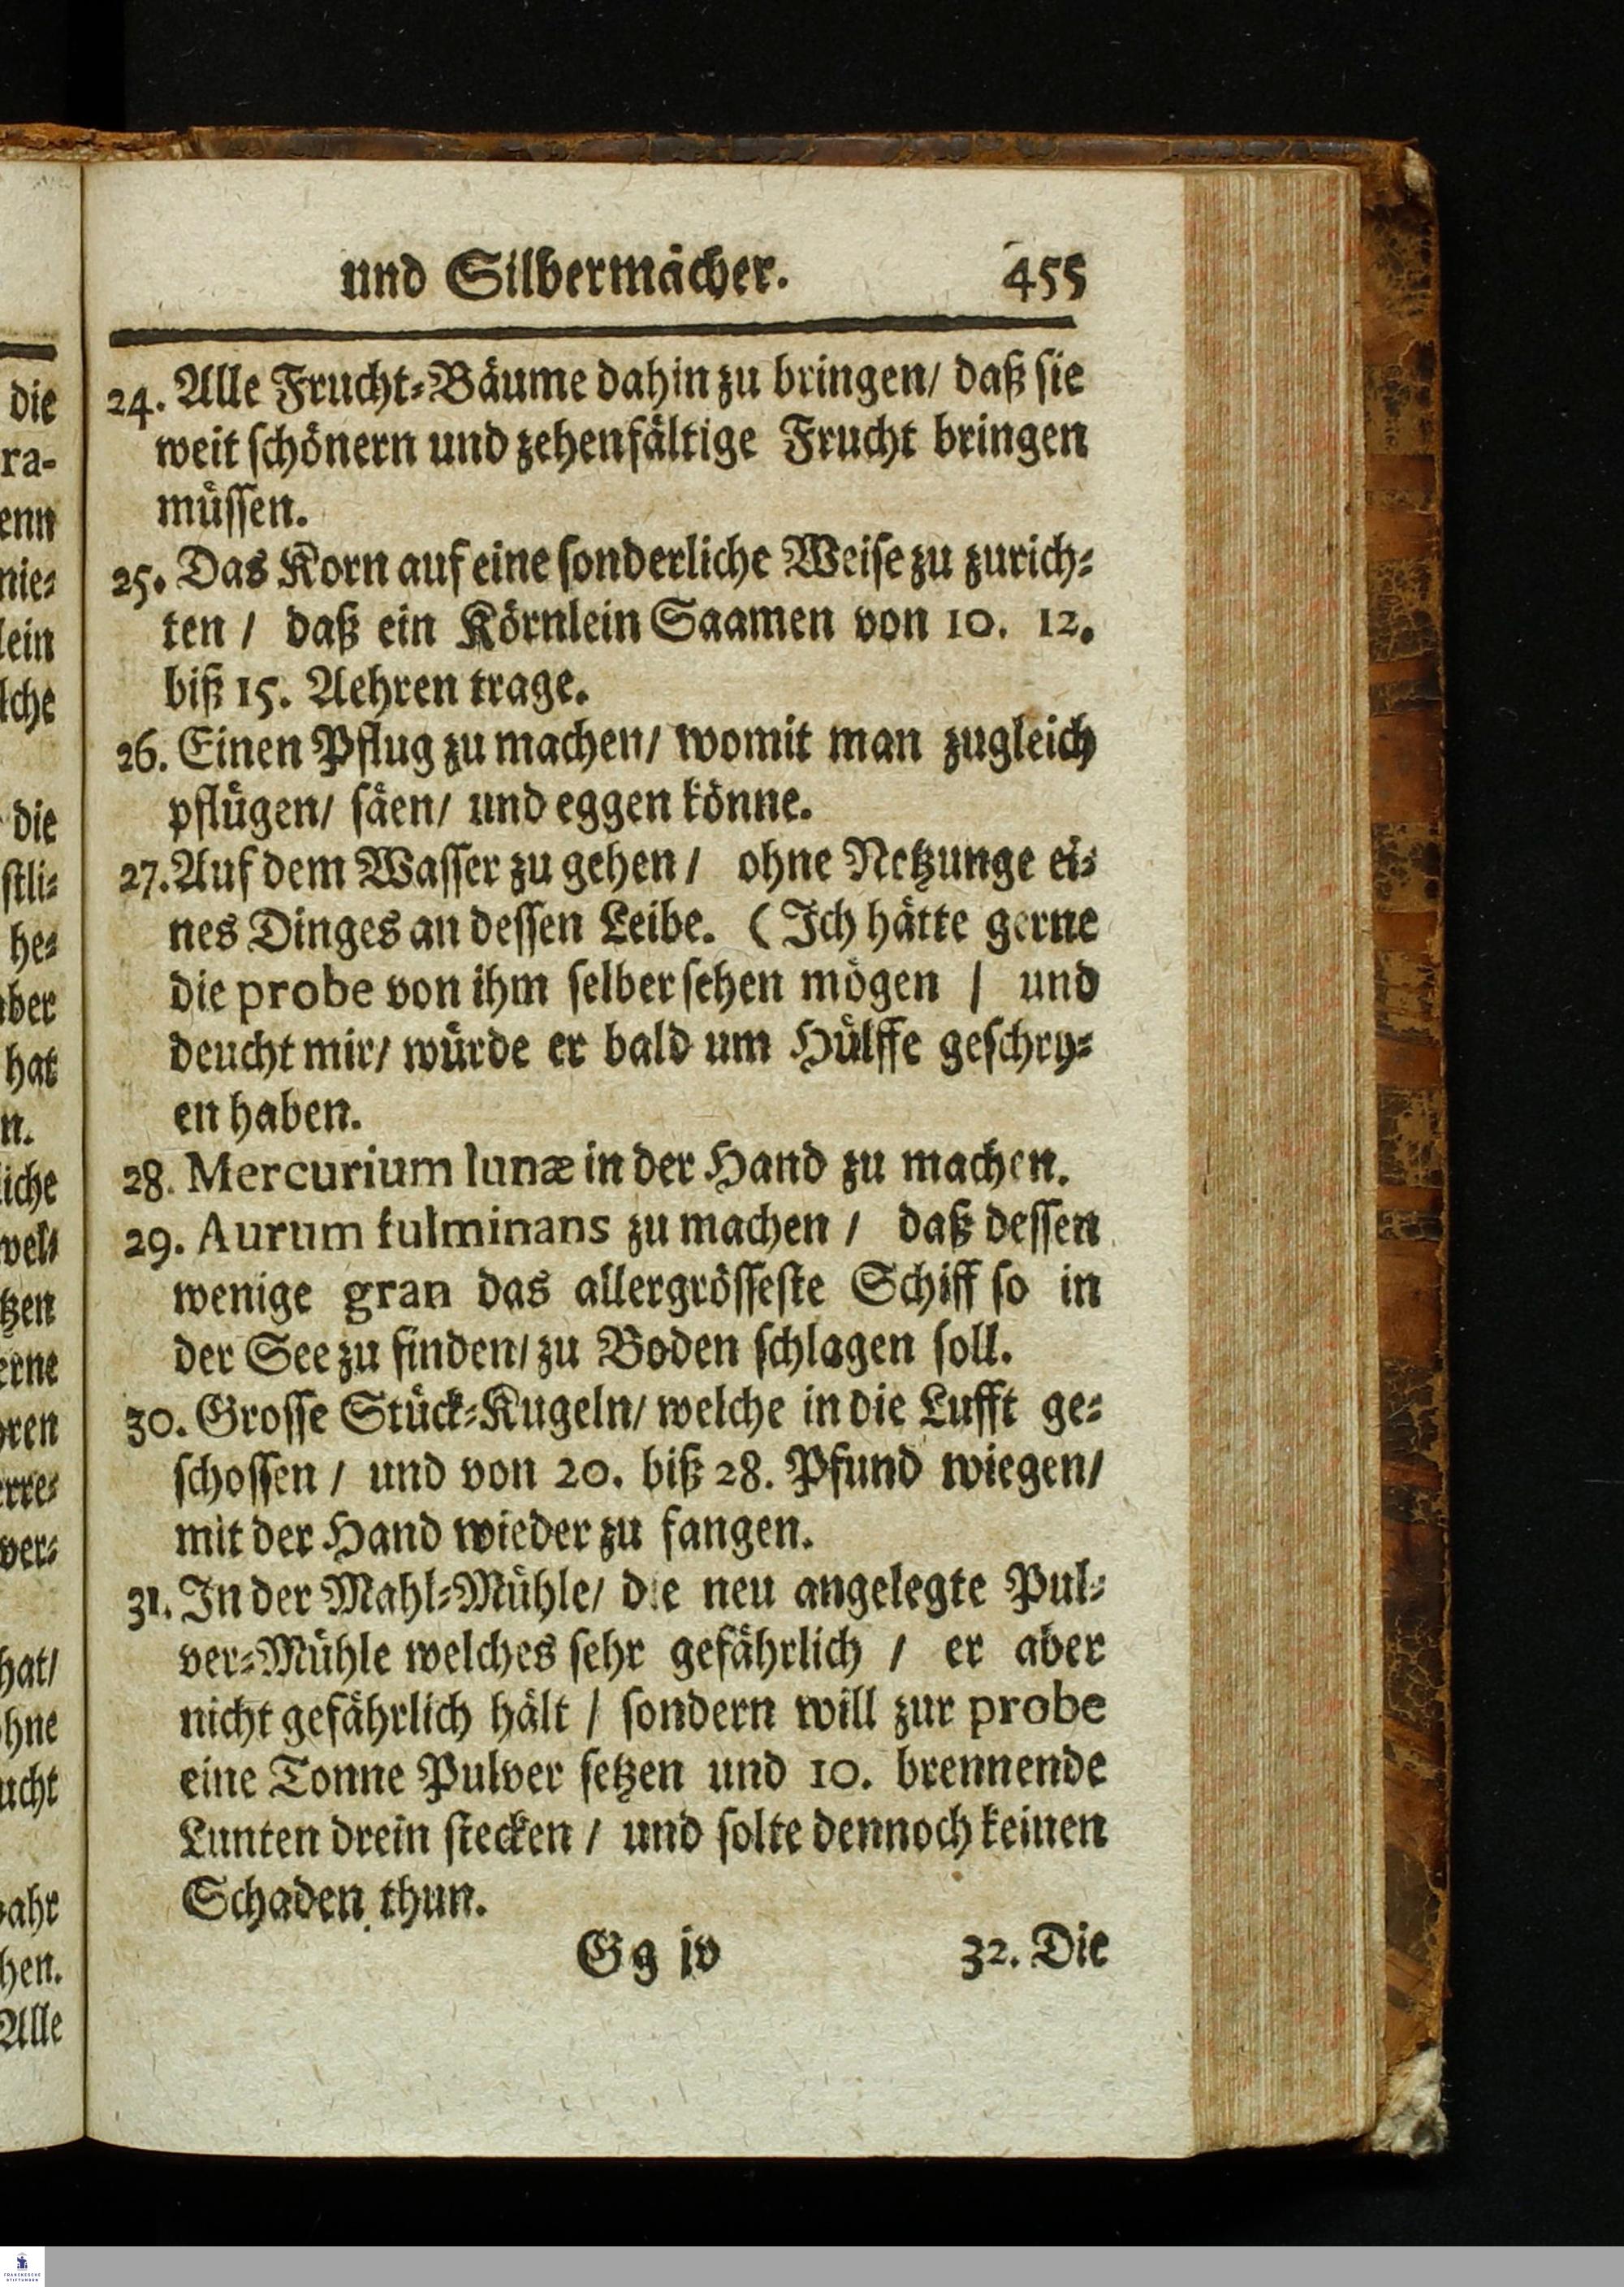 und Silbermacher. 455
24. Alle Frucht-Bäume dahin zu bringen/ daß sie
weit schönern und zehenfältige Frucht bringen
müssen.
25. Das Korn auf eine sonderliche Weise zu zurich-
ten / daß ein Körnlein Saamen von 10. 12.
biß 15. Aehren trage.
26. Einen Pflug zu machen/ womit man zugleich
pflügen/ säen/ und eggen könne.
27. Auf dem Wasser zu gehen / ohne Netzunge ei-
nes Dinges an dessen Leibe. (Ich hätte gerne
die probe von ihm selber sehen mögen / und
deucht mir/ würde er bald um Hülffe geschry-
en haben.
28. Mercurium lunæ in der Hand zu machen.
29. Aurum fulminans zu machen / daß dessen
wenige gran das allergrösseste Schiff so in
der See zu finden/ zu Boden schlagen soll.
30. Grosse Stück-Kugeln/ welche in die Lufft ge-
schossen / und von 20. biß 28. Pfund wiegen/
mit der Hand wieder zu fangen.
31. In der Mahl-Mühle/ die neu angelegte Pul-
ver-Mühle welches sehr gefährlich / er aber
nicht gefährlich hält / sondern will zur probe
eine Tonne Pulver setzen und 10. brennende
Lunten drein stecken / und solte dennoch keinen
Schaden thun.
Gg iv 32. Die